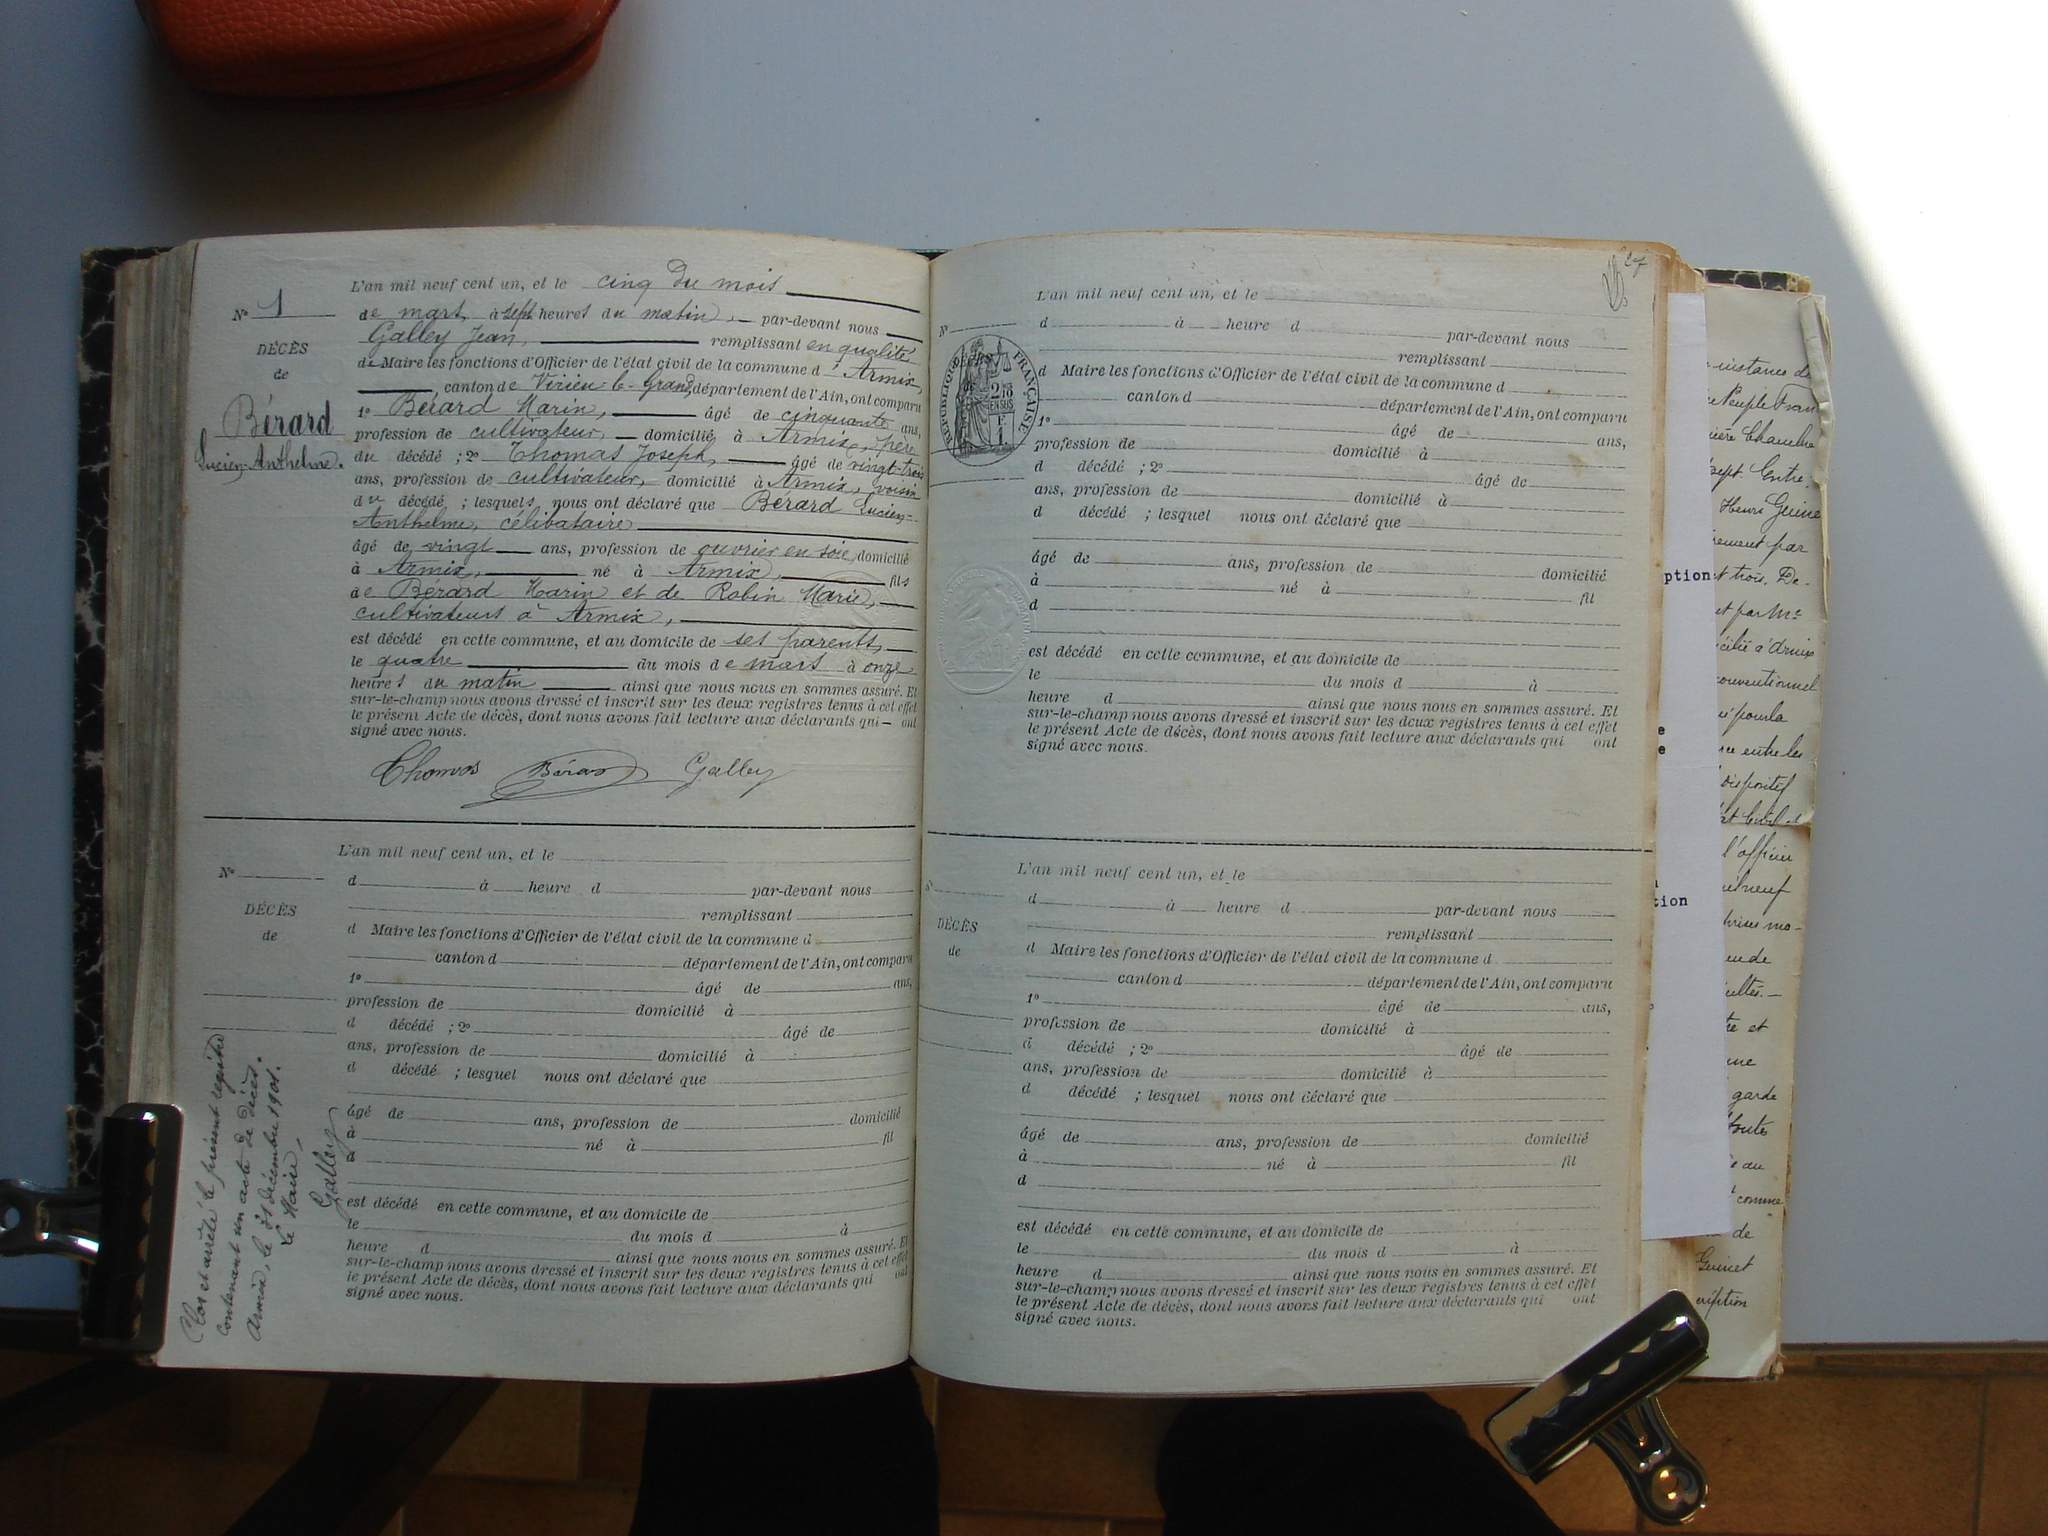 N° 1
DÉCÈS
de
Bérard
Lucien-Anthelme.
L'an mil neuf cent un, et le cinq du mois
de mars à sept heures du matin, par-devant nous
Galley Jean, remplissant en qualité
de Maire les fonctions d'Officier de l'état civil de la commune d'Armix,
canton de Virieu-le-Grand, département de l'Ain, ont comparu
1° Bérard Marin, âgé de cinquante ans,
profession de cultivateur, domicilié à Armix, père
du décédé ; 2° Thomas Joseph, âgé de vingt-trois
ans, profession de cultivateur, domicilié à Armix, voisin
du décédé ; lesquels nous ont déclaré que Bérard Lucien-
Anthelme, célibataire
âgé de vingt ans, profession de ouvrier en soie, domicilié
à Armix, né à Armix, fils
de Bérard Marin et de Robin Marie,
cultivateurs à Armix,
est décédé en cette commune, et au domicile de ses parents,
le quatre du mois de mars à onze
heures du matin ainsi que nous nous en sommes assuré. Et
sur-le-champ nous avons dressé et inscrit sur les deux registres tenus à cet effet
le présent Acte de décès, dont nous avons fait lecture aux déclarants qui ont
signé avec nous.
Thomas Bérard Galley
N°
DÉCÈS
de
L'an mil neuf cent un, et le
d à heure d par-devant nous
remplissant
d Maire les fonctions d'Officier de l'état civil de la commune d
canton d département de l'Ain, ont comparu
1° âgé de ans,
profession de domicilié à
d décédé ; 2° âgé de
ans, profession de domicilié à
d décédé ; lesquel nous ont déclaré que
âgé de ans, profession de domicilié
à né à fil
d
est décédé en cette commune, et au domicile de
le du mois d à
heure d ainsi que nous nous en sommes assuré. Et
sur-le-champ nous avons dressé et inscrit sur les deux registres tenus à cet effet
le présent Acte de décès, dont nous avons fait lecture aux déclarants qui ont
signé avec nous.
Clos et arrêté le présent registre
contenant un acte de décès.
Armix, le 31 décembre 1901.
Le Maire,
Galley
27
N°
RÉPUBLIQUE FRANÇAISE
L'an mil neuf cent un, et le
d à heure d par-devant nous
remplissant
d Maire les fonctions d'Officier de l'état civil de la commune d
canton d département de l'Ain, ont comparu
1° âgé de ans,
profession de domicilié à
d décédé ; 2° âgé de
ans, profession de domicilié à
d décédé ; lesquel nous ont déclaré que
âgé de ans, profession de domicilié
à né à fil
d
est décédé en cette commune, et au domicile de
le du mois d à
heure d ainsi que nous nous en sommes assuré. Et
sur-le-champ nous avons dressé et inscrit sur les deux registres tenus à cet effet
le présent Acte de décès, dont nous avons fait lecture aux déclarants qui ont
signé avec nous.
N°
DÉCÈS
de
L'an mil neuf cent un, et le
d à heure d par-devant nous
remplissant
d Maire les fonctions d'Officier de l'état civil de la commune d
canton d département de l'Ain, ont comparu
1° âgé de ans,
profession de domicilié à
d décédé ; 2° âgé de
ans, profession de domicilié à
d décédé ; lesquel nous ont déclaré que
âgé de ans, profession de domicilié
à né à fil
d
est décédé en cette commune, et au domicile de
le du mois d à
heure d ainsi que nous nous en sommes assuré. Et
sur-le-champ nous avons dressé et inscrit sur les deux registres tenus à cet effet
le présent Acte de décès, dont nous avons fait lecture aux déclarants qui ont
signé avec nous.
ption
e
e
tion
Peuple Fran
sept. Entre
Henri Guine
par
trois. De-
par Me
à Armix
pour la
entre les
l'officier
neuf
mo-
et
garde
au
comme
de
Guinet